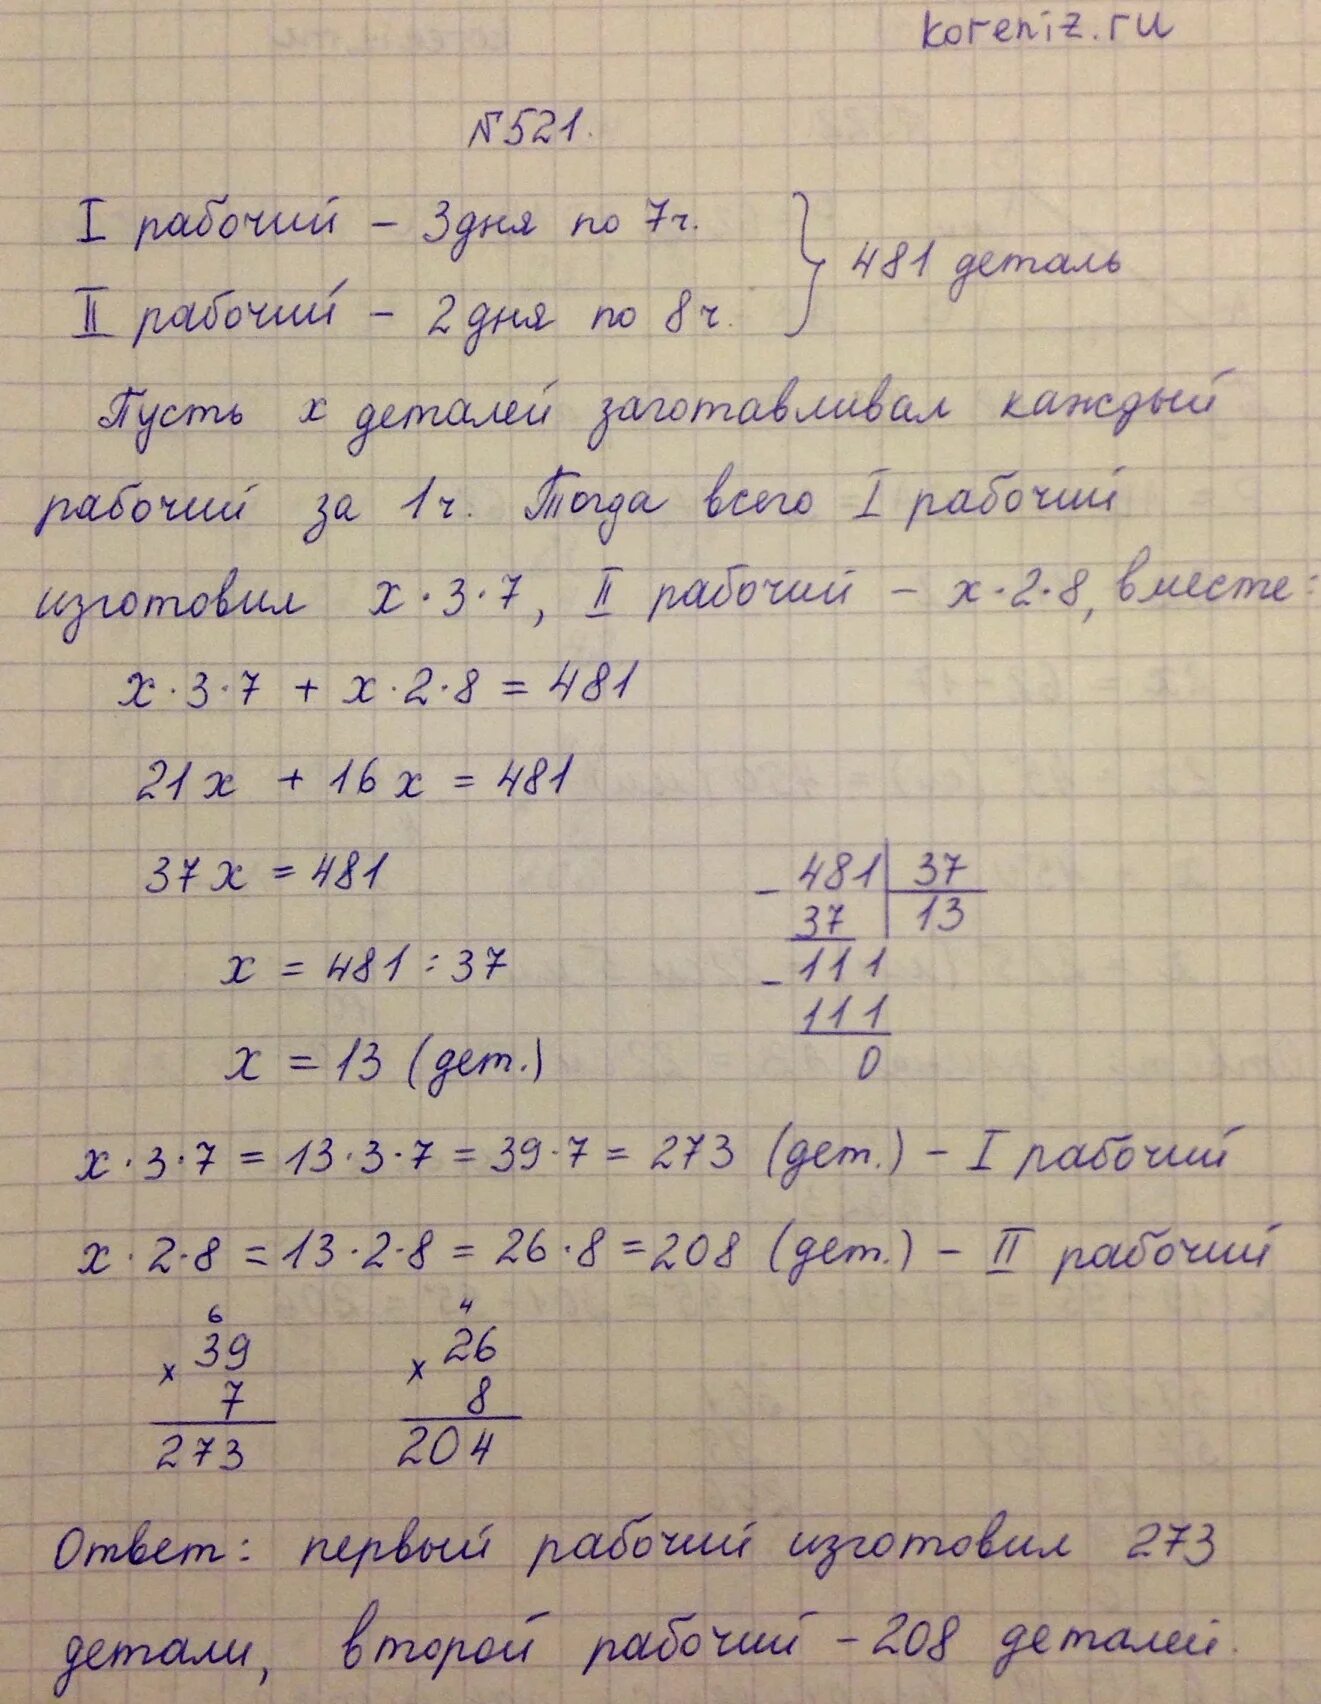 koreniz.ru
№521.
I рабочий – 3 дня по 7 ч.
481 деталь
II рабочий – 2 дня по 8 ч.
Пусть x деталей заготавливал каждый
рабочий за 1 ч. Тогда всего I рабочий
изготовил x·3·7, II рабочий – x·2·8, вместе:
x·3·7 + x·2·8 = 481
21x + 16x = 481
37x = 481
x = 481 : 37
x = 13 (дет.)
– 481 | 37
37 | 13
– 111
111
0
x·3·7 = 13·3·7 = 39·7 = 273 (дет.) – I рабочий
x·2·8 = 13·2·8 = 26·8 = 208 (дет.) – II рабочий
6
x 39
7
273
4
x 26
8
204
Ответ: первый рабочий изготовил 273
детали, второй рабочий – 208 деталей.